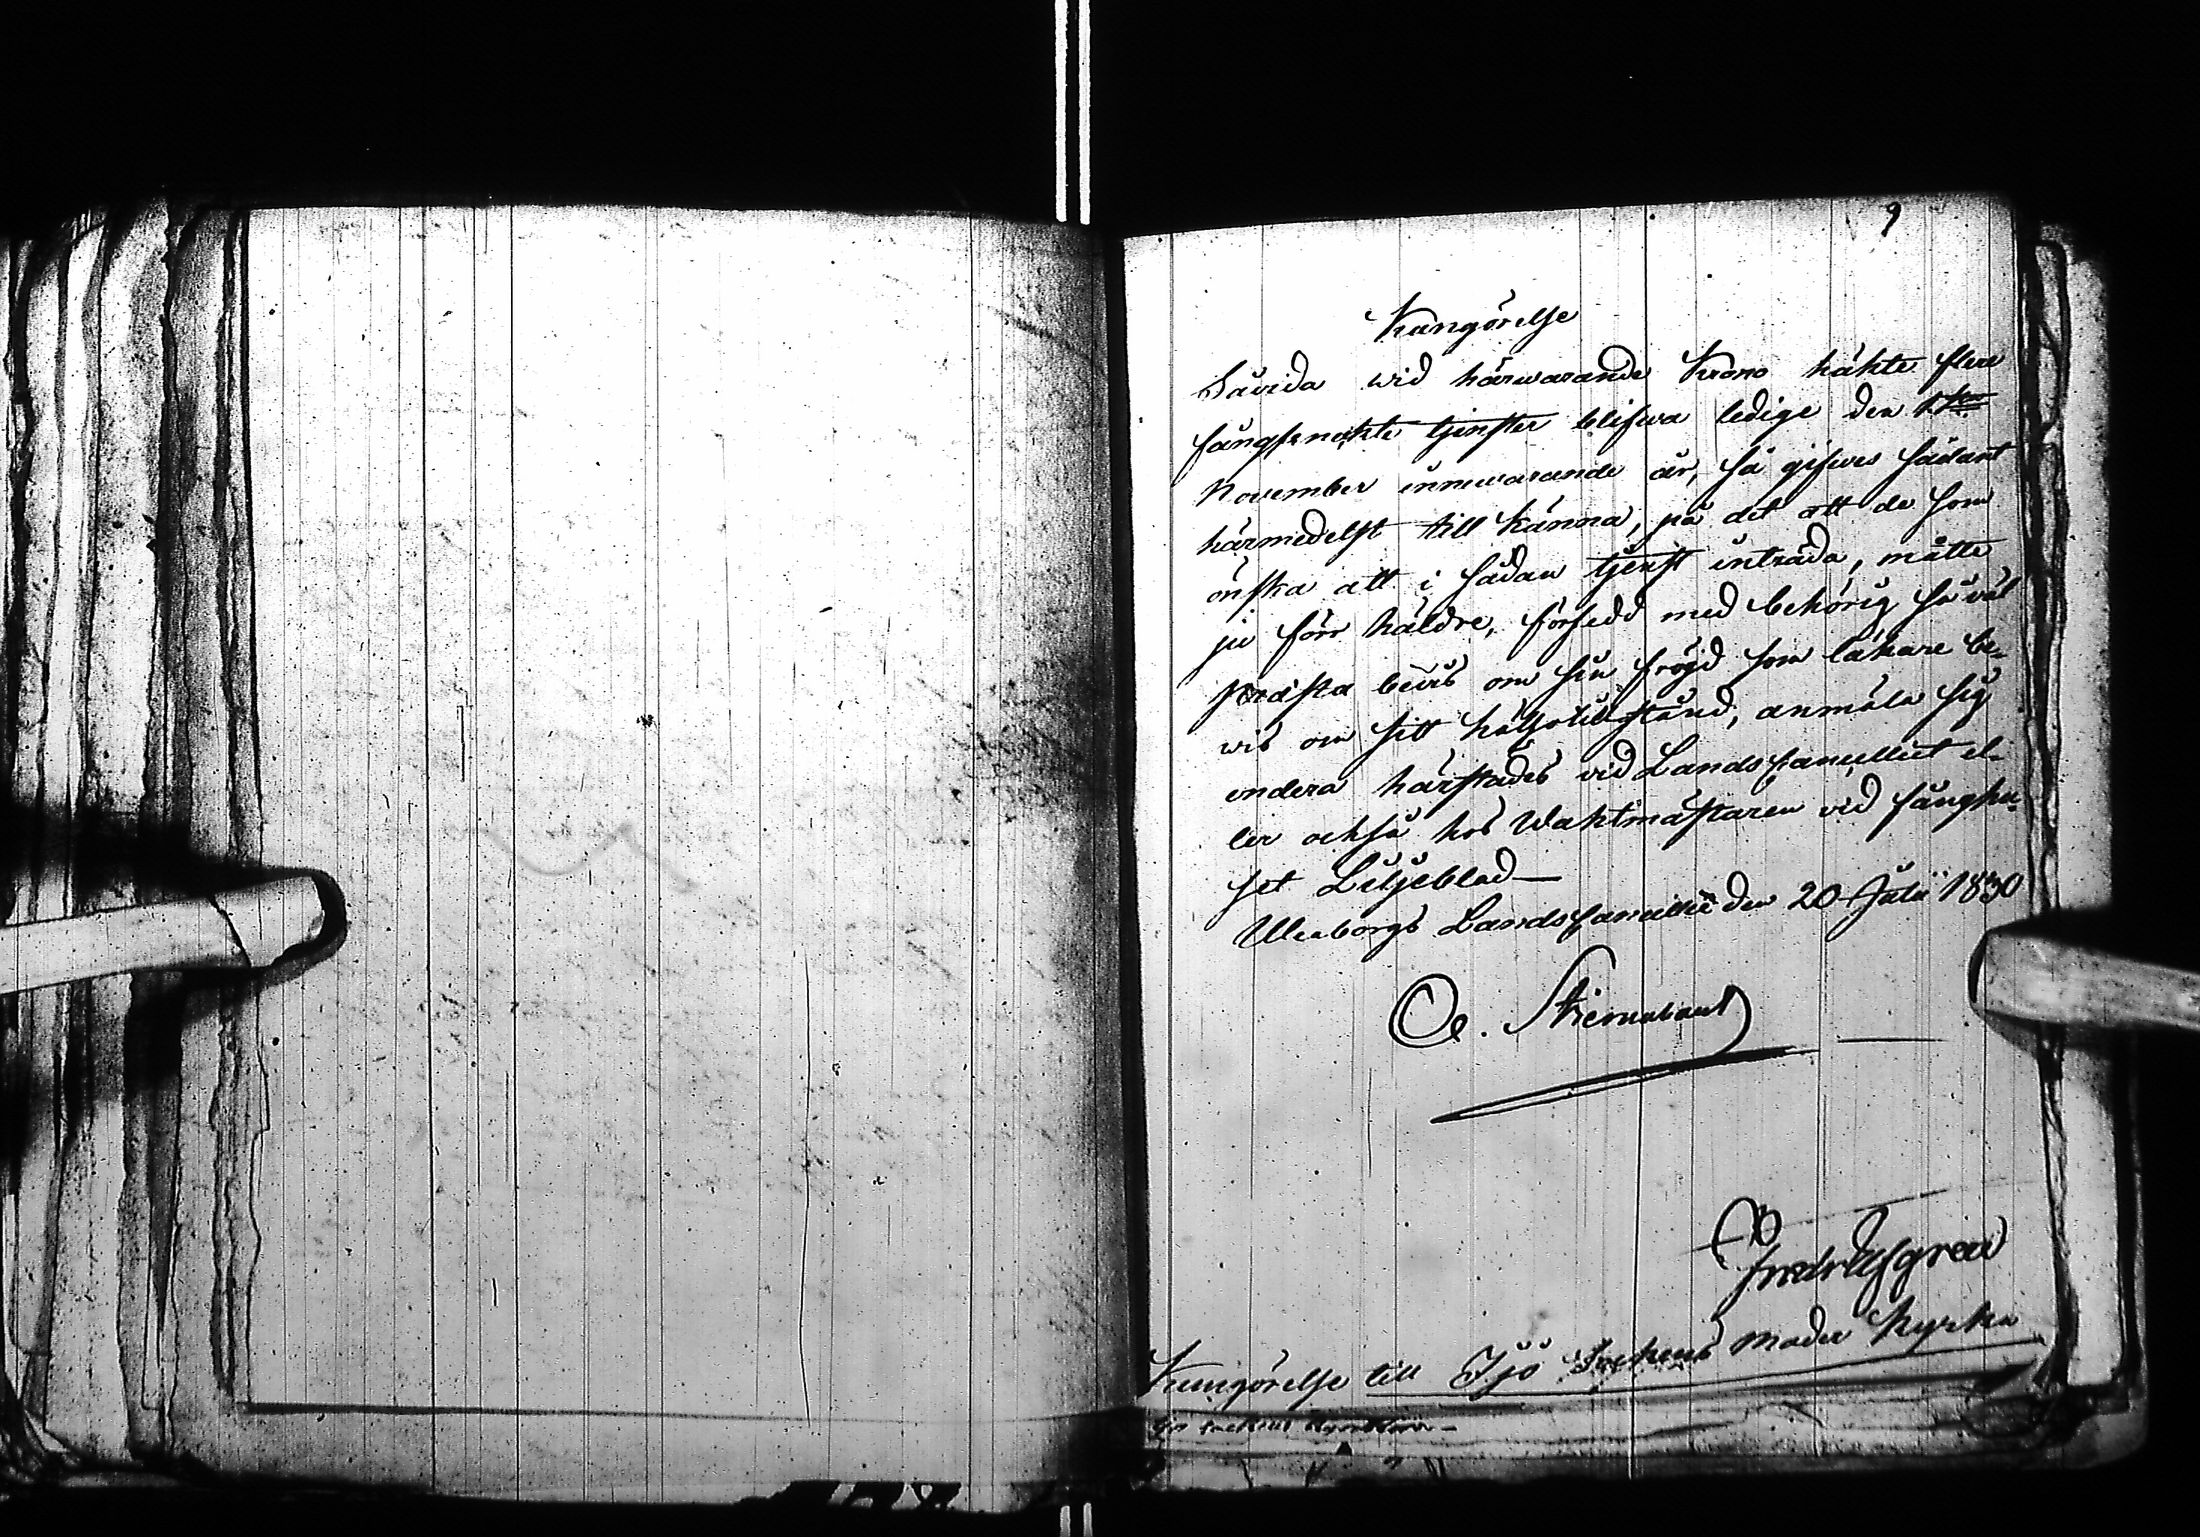 9
Kungörelse
Såvida wid härwarande Krono häkte flere
fångknekte tjenster blifwa ledige den 1sta
November innewarande år, så gifwes sådant
härmedelst till känna, på det att de som
önska att i sådan tjenst inträda, måtte
ju förr häldre, försedd med behörig så väl
Prästa bevis om sin fröjd som läkare be-
wis om sitt hälsotillstånd, anmäla sig
endera härstädes vid Landscancelliet el-
ler också hos Waktmästaren vid fänghu-
set Liljeblad—
Uleaborgs Landscancellie den 20 Juli 1830
C. Stiernvant
Fredr Elfgren
Kungörelse till Ijo Sockens moder Kyrka